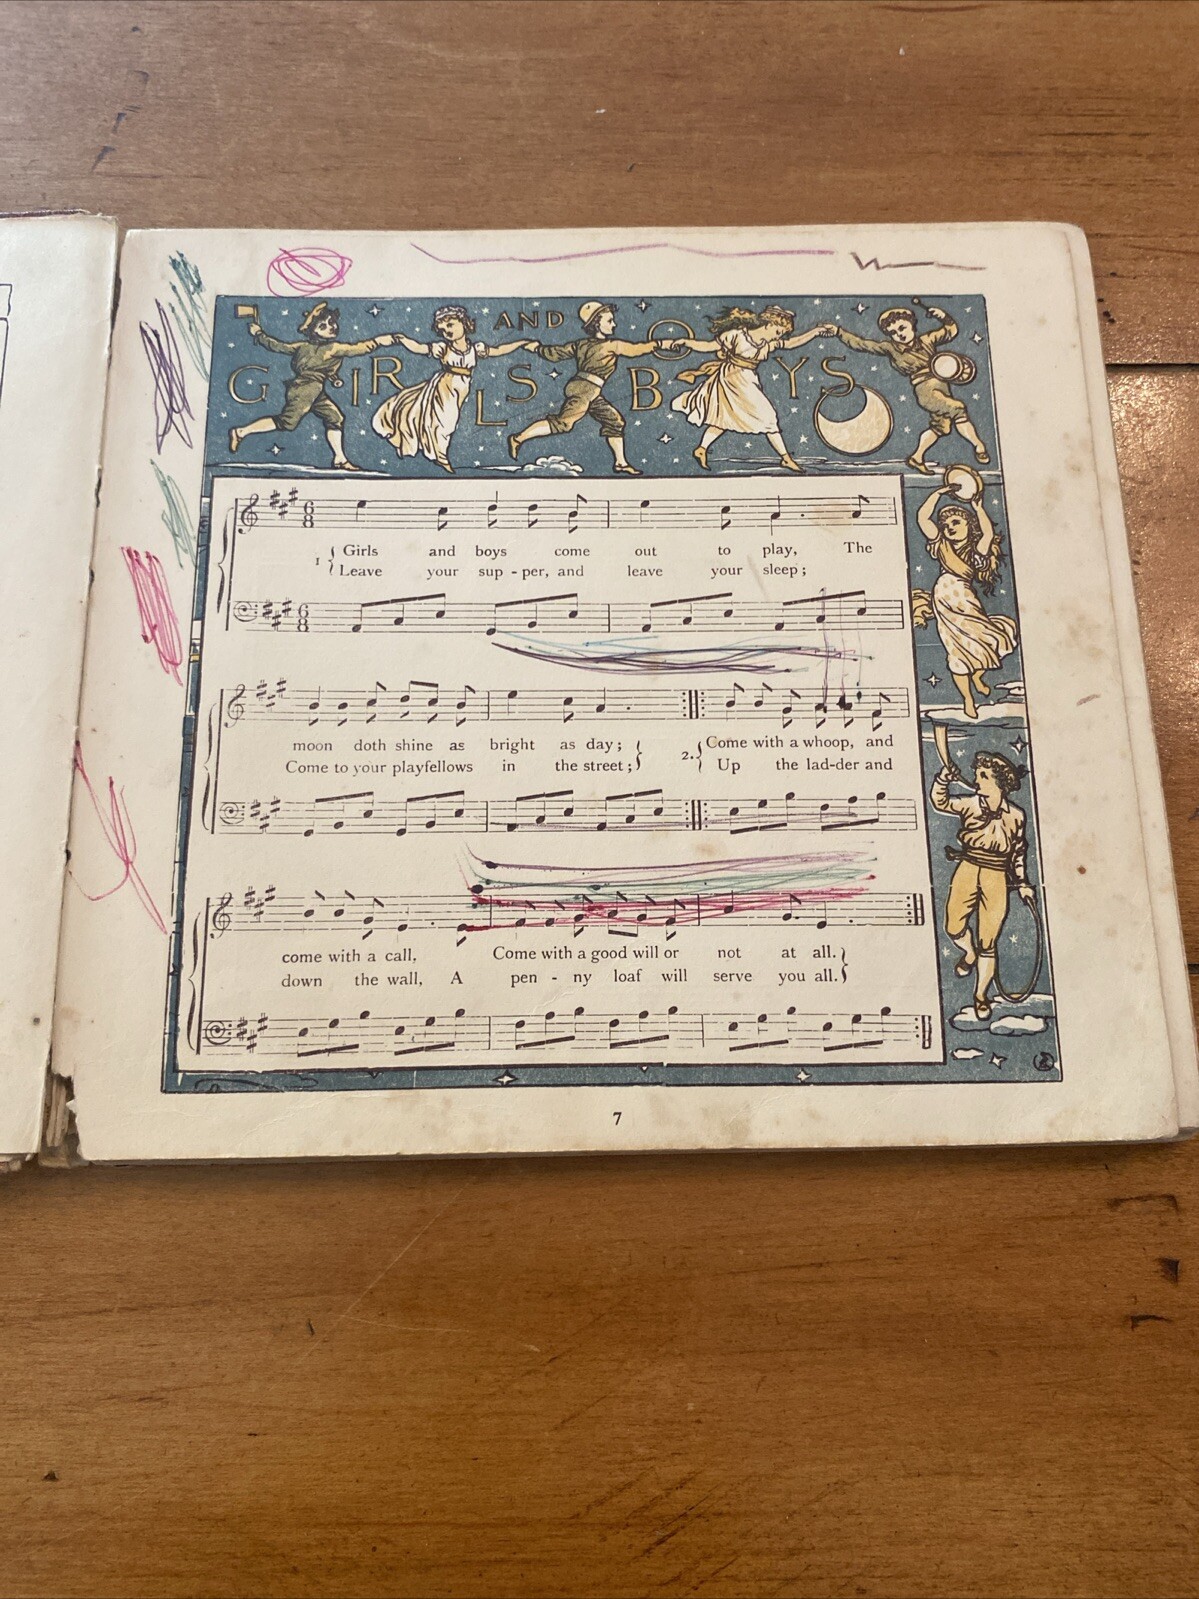 GIRLS AND BOYS
1 { Girls and boys come out to play, The
{ Leave your sup - per, and leave your sleep;
moon doth shine as bright as day; }
Come to your playfellows in the street; }
2. { Come with a whoop, and
{ Up the lad-der and
come with a call, Come with a good will or not at all. }
down the wall, A pen - ny loaf will serve you all. }
7